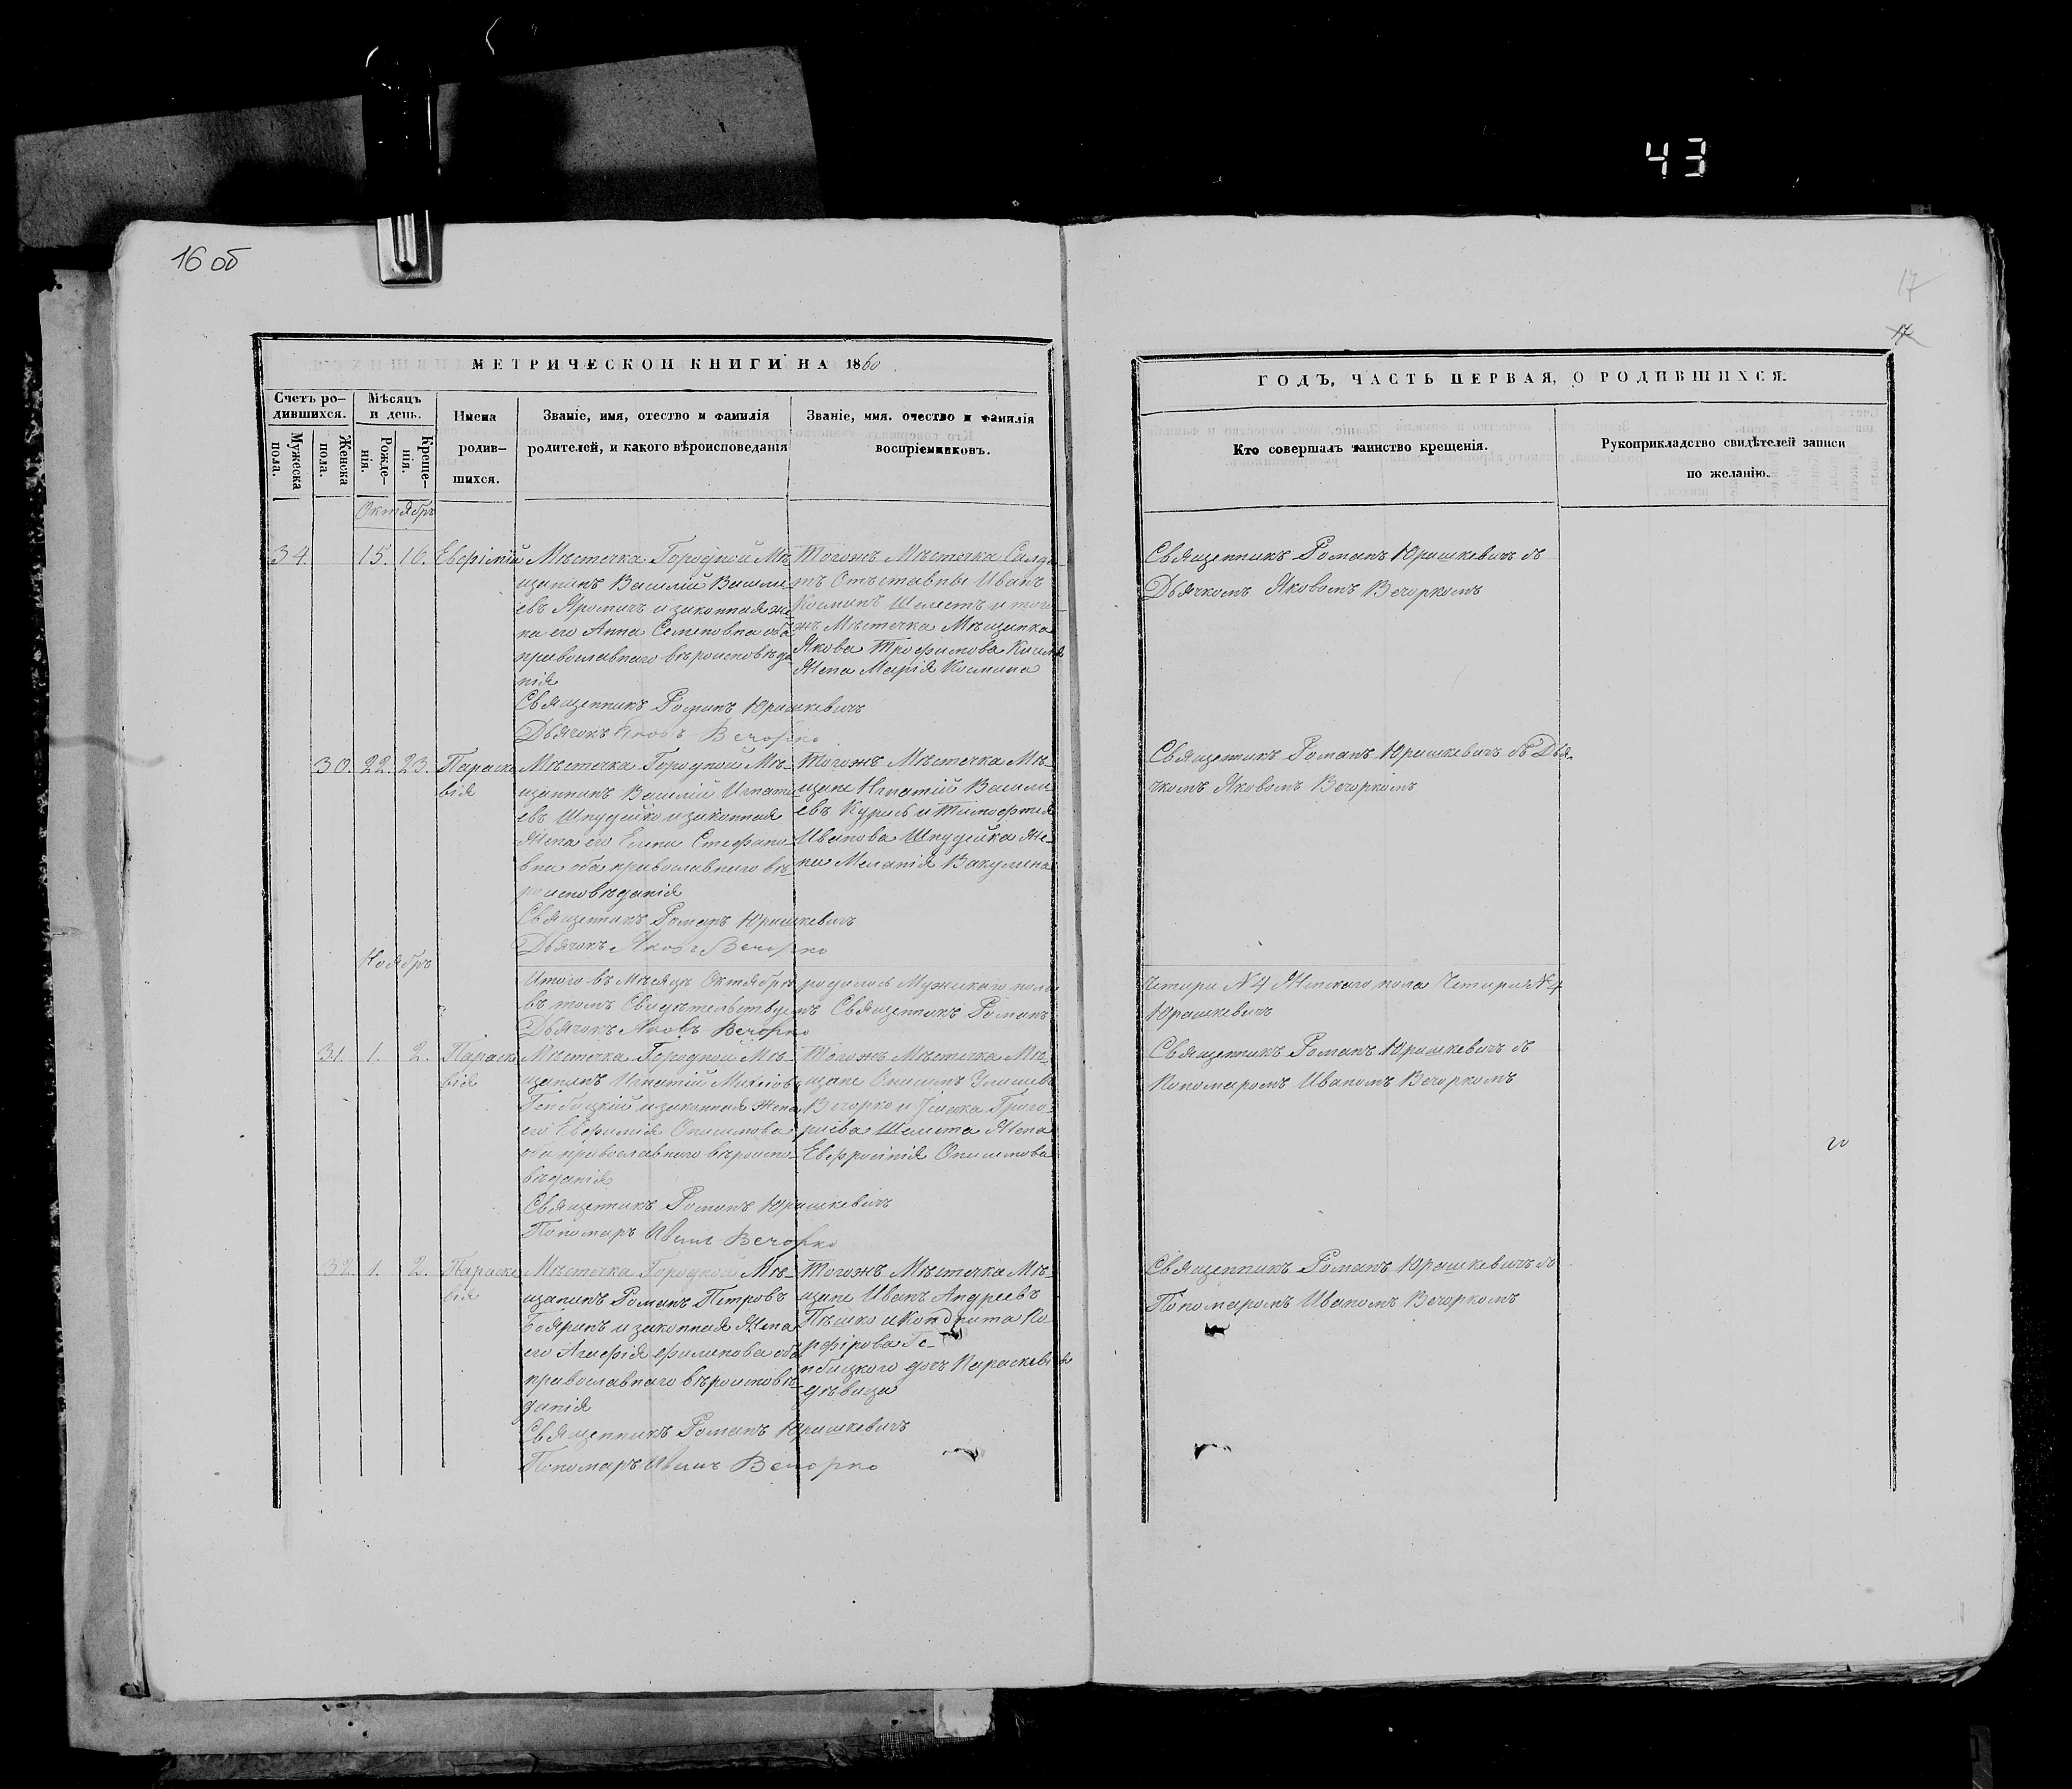 43
16 об
17
17
МЕТРИЧЕСКОЙ КНИГИ НА 1860
ГОДЪ, ЧАСТЬ ПЕРВАЯ, О РОДИВШИХСЯ.
Счетъ ро-
дившихся.
Мужеска
пола.
Женска
пола.
Мѣсяцъ
и день.
Рожде-
нія.
Креще-
нія.
Имена
родив-
шихся.
Званіе, имя, отество и фамилія
родителей, и какого вѣроисповеданія
Званіе, имя. очество и фамилія
воспріемниковъ.
Кто совершалъ таинство крещенія.
Рукоприкладство свидѣтелей записи
по желанію.
Октябрь
34. 15. 16. Евфімій
Мѣстечка Городной Мѣ
щанинъ Василій Василі-
евъ Яромичъ и законная же
на его Анна Семеновна оба
православнаго вѣроисповѣда
нія
Священникъ Романъ Юрашкевичъ
Дьячокъ Яковъ Вечорко
Тогожъ Мѣстечка Салда-
тъ Отъставны Иванъ
Косминъ Шелестъ и того-
жъ Мѣстечка Мѣщанка
Якова Трофимова
Жена Марія Космина
Священникъ Романъ Юрашкевичъ съ
Дьячкомъ Яковомъ Вечоркомъ
30. 22. 23. Параске
вія
Мѣстечка Городной Мѣ-
щаннинъ Василій Игнати
евъ Шпудейко и законная
Жена его Елена Стефано-
вна оба православнаго вѣ-
роисповѣданія
Священникъ Романъ Юрашкевичъ
Дьячокъ Яковъ Вечорко
Тогожъ Мѣстечка Мѣ-
щане Игнатій Васили
евъ Курисъ и Тимофтея
Иванова Шпудейка Же-
на Меланія Вакулина
Священникъ Романъ Юрашкевичъ съ Дья-
чкомъ Яковомъ Вечоркомъ
Ноябрь
Итого въ Мѣсяцѣ Октябрѣ родилось Мужскаго пола
Четыри № 4 Женскаго пола Четыри № 4
въ томъ Свидѣтельствуемъ Священникъ Романъ
Юрашкевичъ
Дьячокъ Яковъ Вечорко
31. 1. 2. Параске
вія
Мѣстечка Городной Мѣ-
щанинъ Игнатій
и законная Жена
его Евфимія Онисимова
оба православнаго вѣроиспо-
вѣданія
Священникъ Романъ Юрашкевичъ
Пономаръ Иванъ Вечорко
Тогожъ Мѣстечка Мѣ-
щане Онисимъ
Вечорко и Григо-
ріева Шелеста Жена
Евфросинія Онисимова
Священникъ Романъ Юрашкевичъ съ
Пономаромъ Иваномъ Вечоркомъ
32. 1. 2. Параске
вія
Мѣстечка Городной Мѣ-
щанинъ Романъ Петровъ
Бояринъ и законная Жена
его Агафія Филипова оба
православнаго вѣроисповѣ-
данія
Священникъ Романъ Юрашкевичъ
Пономаръ Иванъ Вечорко
Тогожъ Мѣстечка Мѣ-
щане Иванъ Андреевъ
Пѣшко и Кондрата По
рфірова Ге-
нбицкого дочъ Параскевія
дѣвица
Священникъ Романъ Юрашкевичъ съ
Пономаромъ Иваномъ Вечоркомъ